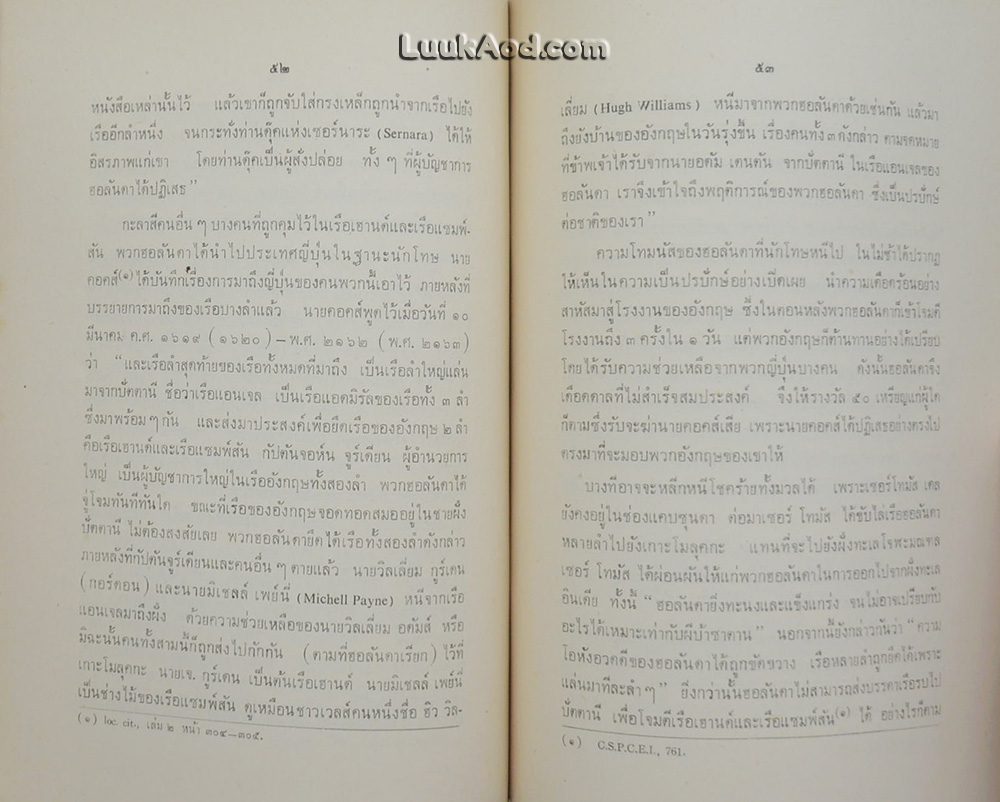 LuukAod.com
๕๒
หนังสือเหล่านั้นไว้ แล้วเขาก็ถูกจับใส่กรงเหล็กถูกนำจากเรือไปยัง
เรืออีกลำหนึ่ง จนกระทั่งท่านดุ๊คแห่งเซอร์นาระ (Sernara) ได้ให้
อิสรภาพแก่เขา โดยท่านดุ๊คเป็นผู้สั่งปล่อย ทั้ง ๆ ที่ผู้บัญชาการ
ฮอลันดาได้ปฏิเสธ”
กะลาสีคนอื่น ๆ บางคนที่ถูกคุมไว้ในเรือเฮานด์และเรือแซมพ์-
สัน พวกฮอลันดาได้นำไปประเทศญี่ปุ่นในฐานะนักโทษ นาย
คอคส์(๑) ได้บันทึกเรื่องการมาถึงญี่ปุ่นของคนพวกนี้เอาไว้ ภายหลังที่
บรรยายการมาถึงของเรือบางลำแล้ว นายคอคส์พูดไว้เมื่อวันที่ ๑๐
มีนาคม ค.ศ. ๑๖๑๙ (๑๖๒๐) — พ.ศ. ๒๑๖๒ (พ.ศ. ๒๑๖๓)
ว่า “และเรือลำสุดท้ายของเรือทั้งหมดที่มาถึง เป็นเรือลำใหญ่แล่น
มาจากปัตตานี ชื่อว่าเรือแอนเจล เป็นเรือแอดมิรัลของเรือทั้ง ๓ ลำ
ซึ่งมาพร้อม ๆ กัน และส่งมาประสงค์เพื่อยึดเรือของอังกฤษ ๒ ลำ
คือเรือเฮานด์และเรือแซมพ์สัน กัปตันจอห์น จูร์เดียน ผู้อำนวยการ
ใหญ่ เป็นผู้บัญชาการใหญ่ในเรืออังกฤษทั้งสองลำ พวกฮอลันดาได้
จู่โจมทันทีทันใด ขณะที่เรือของอังกฤษจอดทอดสมออยู่ในชายฝั่ง
ปัตตานี ไม่ต้องสงสัยเลย พวกฮอลันดายึดได้เรือทั้งสองลำดังกล่าว
ภายหลังที่กัปตันจูร์เดียนและคนอื่น ๆ ตายแล้ว นายวิลเลี่ยม กูร์เดน
(กอร์ดอน) และนายมิเชลล์ เพย์นี่ (Michell Payne) หนีจากเรือ
แอนเจลมาถึงฝั่ง ด้วยความช่วยเหลือของนายวิลเลี่ยม อดัมส์ หรือ
มิฉะนั้นคนทั้งสามนี้ก็ถูกส่งไปกักกัน (ตามที่ฮอลันดาเรียก) ไว้ที่
เกาะโมลุคกะ นายเจ. กูร์เดน เป็นต้นเรือเฮานด์ นายมิเชลล์ เพย์นี่
เป็นช่างไม้ของเรือแซมพ์สัน ดูเหมือนชาวเวลส์คนหนึ่งชื่อ ฮิว วิล-
(๑) loc. cit., เล่ม ๒ หน้า ๓๐๔—๓๐๕.
๕๓
เลี่ยม (Hugh Williams) หนีมาจากพวกฮอลันดาด้วยเช่นกัน แล้วมา
ถึงยังบ้านของอังกฤษในวันรุ่งขึ้น เรื่องคนทั้ง ๓ ดังกล่าว ตามจดหมาย
ที่ข้าพเจ้าได้รับจากนายอดัม เดนตัน จากปัตตานี ในเรือแอนเจลของ
ฮอลันดา เราจึงเข้าใจถึงพฤติการณ์ของพวกฮอลันดา ซึ่งเป็นปรปักษ์
ต่อชาติของเรา”
ความโทมนัสของฮอลันดาที่นักโทษหนีไป ในไม่ช้าได้ปรากฏ
ให้เห็นในความเป็นปรปักษ์อย่างเปิดเผย นำความเดือดร้อนอย่าง
สาหัสมาสู่โรงงานของอังกฤษ ซึ่งในตอนหลังพวกฮอลันดาก็เข้าโจมตี
โรงงานถึง ๓ ครั้งใน ๑ วัน แต่พวกอังกฤษก็ต้านทานอย่างได้เปรียบ
โดยได้รับความช่วยเหลือจากพวกญี่ปุ่นบางคน ดังนั้นฮอลันดาจึง
เดือดดาลที่ไม่สำเร็จสมประสงค์ จึงให้รางวัล ๕๐ เหรียญแก่ผู้ใด
ก็ตามซึ่งรับจะฆ่านายคอคส์เสีย เพราะนายคอคส์ได้ปฏิเสธอย่างตรงไป
ตรงมาที่จะมอบพวกอังกฤษของเขาให้
บางทีอาจจะหลีกหนีโชคร้ายทั้งมวลได้ เพราะเซอร์โทมัส เดล
ยังคงอยู่ในช่องแคบซุนดา ต่อมาเซอร์ โทมัส ได้ขับไล่เรือฮอลันดา
หลายลำไปยังเกาะโมลุคกะ แทนที่จะไปยังฝั่งทะเลโจฬะมณฑล
เซอร์ โทมัส ได้ผ่อนผันให้แก่พวกฮอลันดาในการออกไปจากฝั่งทะเล
อินเดีย ทั้งนี้ “ฮอลันดายิ่งทะนงและแข็งแกร่ง จนไม่อาจเปรียบกับ
อะไรได้เหมาะเท่ากับผีบ้าซาตาน” นอกจากนี้ยังกล่าวกันว่า “ความ
โอหังอวดดีของฮอลันดาได้ถูกขัดขวาง เรือหลายลำถูกยึดได้เพราะ
แล่นมาทีละลำ ๆ” ยิ่งกว่านั้นฮอลันดาไม่สามารถส่งบรรดาเรือรบไป
ปัตตานี เพื่อโจมตีเรือเฮานด์และเรือแซมพ์สัน(๑) ได้ อย่างไรก็ตาม
(๑) C.S.P.C.E.I., 761.